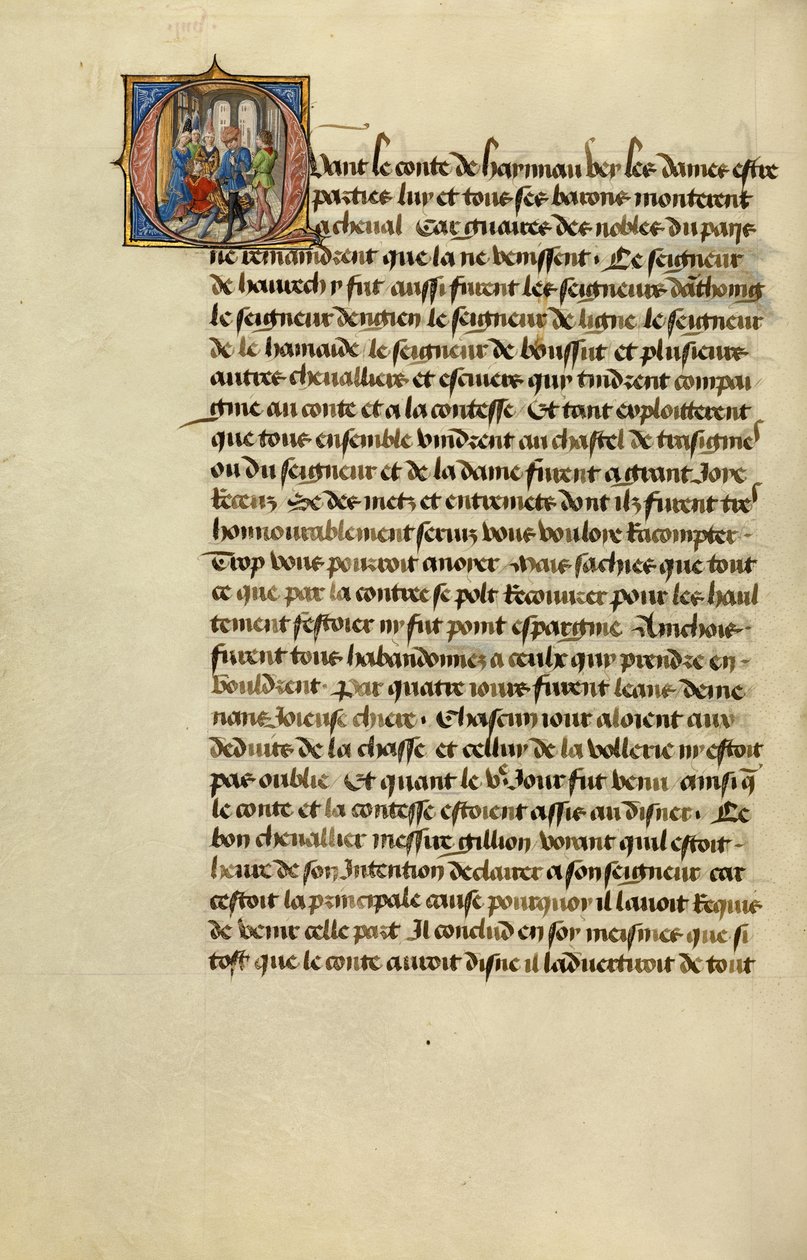 Quant le conte de haynnau vey les dames estre
parties luy et tous ses barons monterent
a cheval Car gaires des nobles du pays
ne remaindrent que la ne venissent. Le seigneur
de haurech y fut aussi furent les seigneurs danthoing
le seigneur denguien le seigneur de ligne le seigneur
de le hamaide le seigneur de boussut et plusieurs
autres chevalliers et escuiers quy tindrent compai
gnie au conte et a la contesse Et tant exploitterent
que tous ensemble vindrent au chastel de trasignies
ou du seigneur et de la dame furent a grant Joye
Receuz Se des metz et entremets dont ilz furent tres
honnourablement serviz vous vouloye Racompter -
Trop vous pourroit anoyer Mais sachies que tout
ce que par la contree se polt Recouvrer pour les haul
tement festoier ny fut point espargnie Ainchois -
furent tous habandonnez a ceulx quy prendre en -
vouldrent. Par quatre iours furent leans deme
nans Joieuse chiere. Chascun iour aloient aux
deduits de la chasse et celluy de la vollerie ny estoit
pas oublie Et quant le ve Jour fut venu ainsi q̄
le conte et la contesse estoient assis au disner. Le
bon chevallier messire gillion voyant quil estoit -
heure de son Intention declairer a son seigneur car
cestoit la principale cause pourquoy il lavoit Requis
de venir celle part Il conclud en soy meismes que si
tost que le conte auroit disne il ladvertiroit de tout